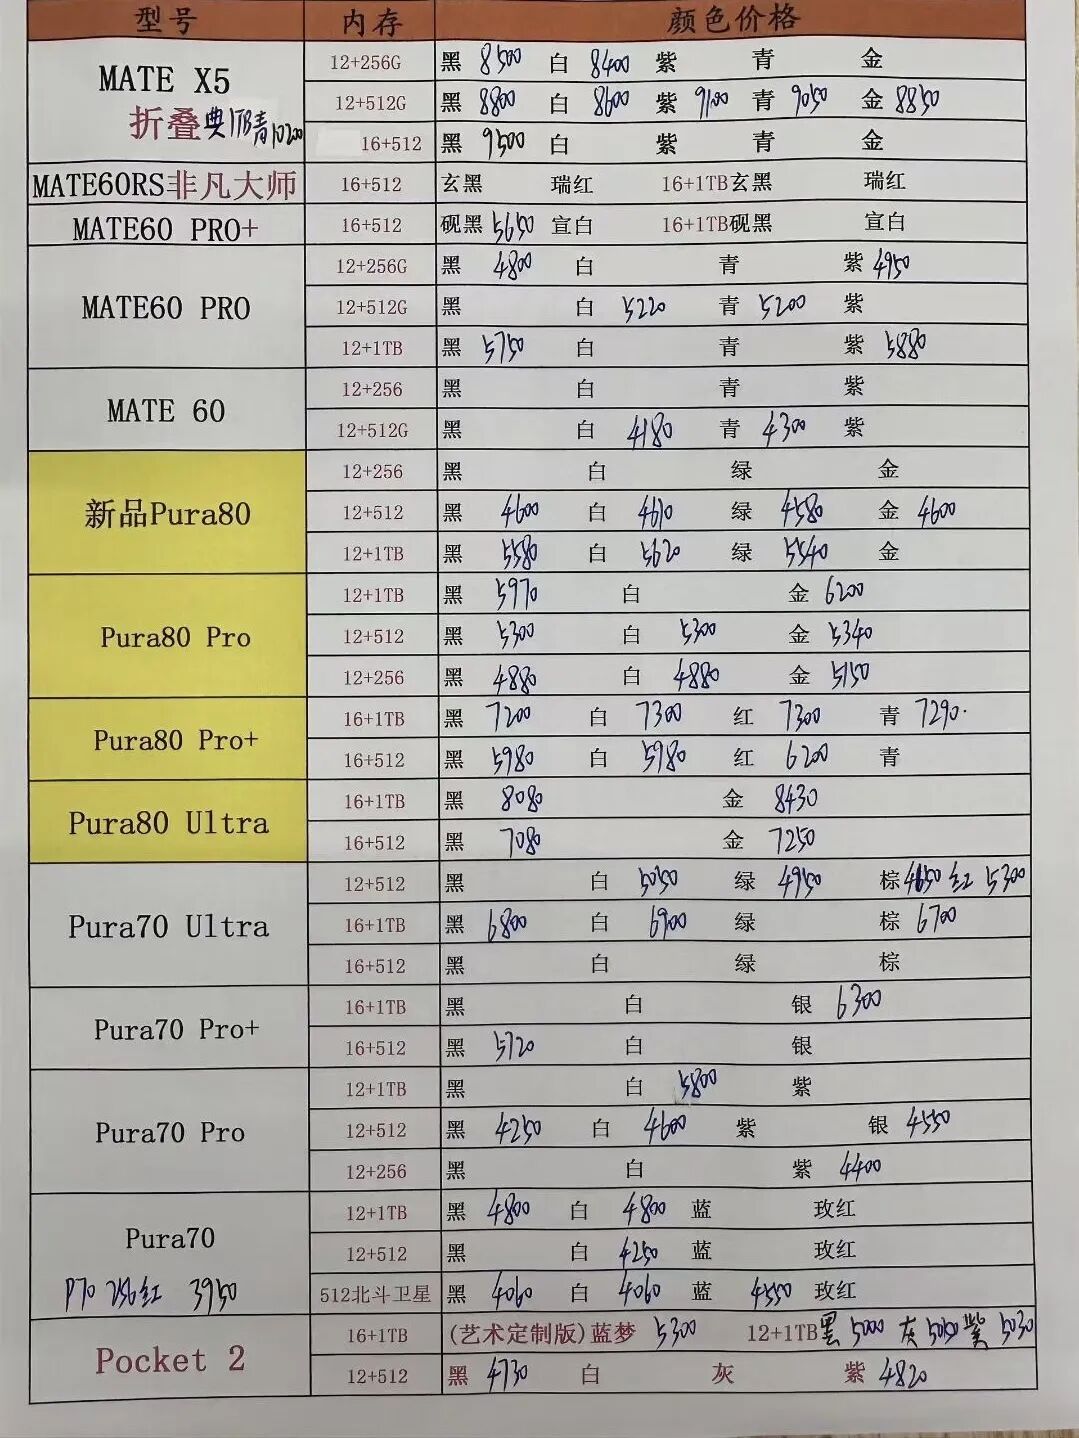 型号 内存 颜色价格
MATE X5 12+256G 黑 8500 白 8400 紫 青 金
折叠典1TB青10200 12+512G 黑 8800 白 8600 紫 9100 青 9050 金 8850
16+512 黑 9500 白 紫 青 金
MATE60RS非凡大师 16+512 玄黑 瑞红 16+1TB玄黑 瑞红
MATE60 PRO+ 16+512 砚黑 5650 宣白 16+1TB砚黑 宣白
12+256G 黑 4800 白 青 紫 4950
MATE60 PRO 12+512G 黑 白 5220 青 5200 紫
12+1TB 黑 5750 白 青 紫 5880
MATE 60 12+256 黑 白 青 紫
12+512G 黑 白 4180 青 4300 紫
12+256 黑 白 绿 金
新品Pura80 12+512 黑 4600 白 4610 绿 4580 金 4600
12+1TB 黑 5580 白 5620 绿 5540 金
12+1TB 黑 5970 白 金 6200
Pura80 Pro 12+512 黑 5300 白 5300 金 5340
12+256 黑 4880 白 4880 金 5150
Pura80 Pro+ 16+1TB 黑 7200 白 7300 红 7300 青 7290
16+512 黑 5980 白 5980 红 6200 青
Pura80 Ultra 16+1TB 黑 8080 金 8430
16+512 黑 7080 金 7250
12+512 黑 白 5050 绿 4950 棕 4650 红 5300
Pura70 Ultra 16+1TB 黑 6800 白 6900 绿 棕 6700
16+512 黑 白 绿 棕
Pura70 Pro+ 16+1TB 黑 白 银 6300
16+512 黑 5720 白 银
12+1TB 黑 白 5800 紫
Pura70 Pro 12+512 黑 4250 白 4600 紫 银 4550
12+256 黑 白 紫 4400
12+1TB 黑 4800 白 4800 蓝 玫红
Pura70 12+512 黑 白 4250 蓝 玫红
P70 256红 3950 512北斗卫星 黑 4060 白 4060 蓝 4550 玫红
Pocket 2 16+1TB (艺术定制版)蓝梦 5300 12+1TB黑 5000 灰 5050 紫 5030
12+512 黑 4730 白 灰 紫 4820